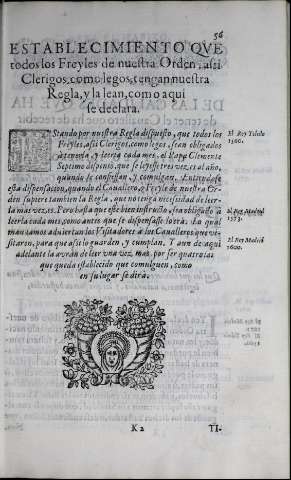 56
ESTABLECIMIENTO QVE
todos los Freyles de nuestra Orden, assi
Clerigos, como legos, tengan nuestra
Regla, y la lean, como aqui
se declara.
EStando por nuestra Regla dispuesto, que todos los
Freyles, assi Clerigos, como legos, sean obligados
a tenerla, y leerla cada mes, el Papa Clemente
Septimo dispensò, que se leyesse tres vezes al año,
quando se confiessan, y comulgan. Entiendase
esta dispensacion, quando el Cauallero, ò Freyle de nuestra Or-
den supiere tambien la Regla, que no tenga necessidad de leer-
la mas vezes. Pero hasta que estè bien instructo, sea obligado a
leerla cada mes, como antes que se dispensasse lo era: lo qual
mandamos aduiertan los Visitadores a los Caualleros que vi-
sitaren, para que assi lo guarden, y cumplan. Y aun de aqui
adelante la avràn de leer vna vez mas, por ser quatro las
que queda establecido que comulguen, como
en su lugar se dirà.
El Rey Toledo
1560.
El Rey Madrid
1573.
El Rey Madrid
1600.
K 2
TI-